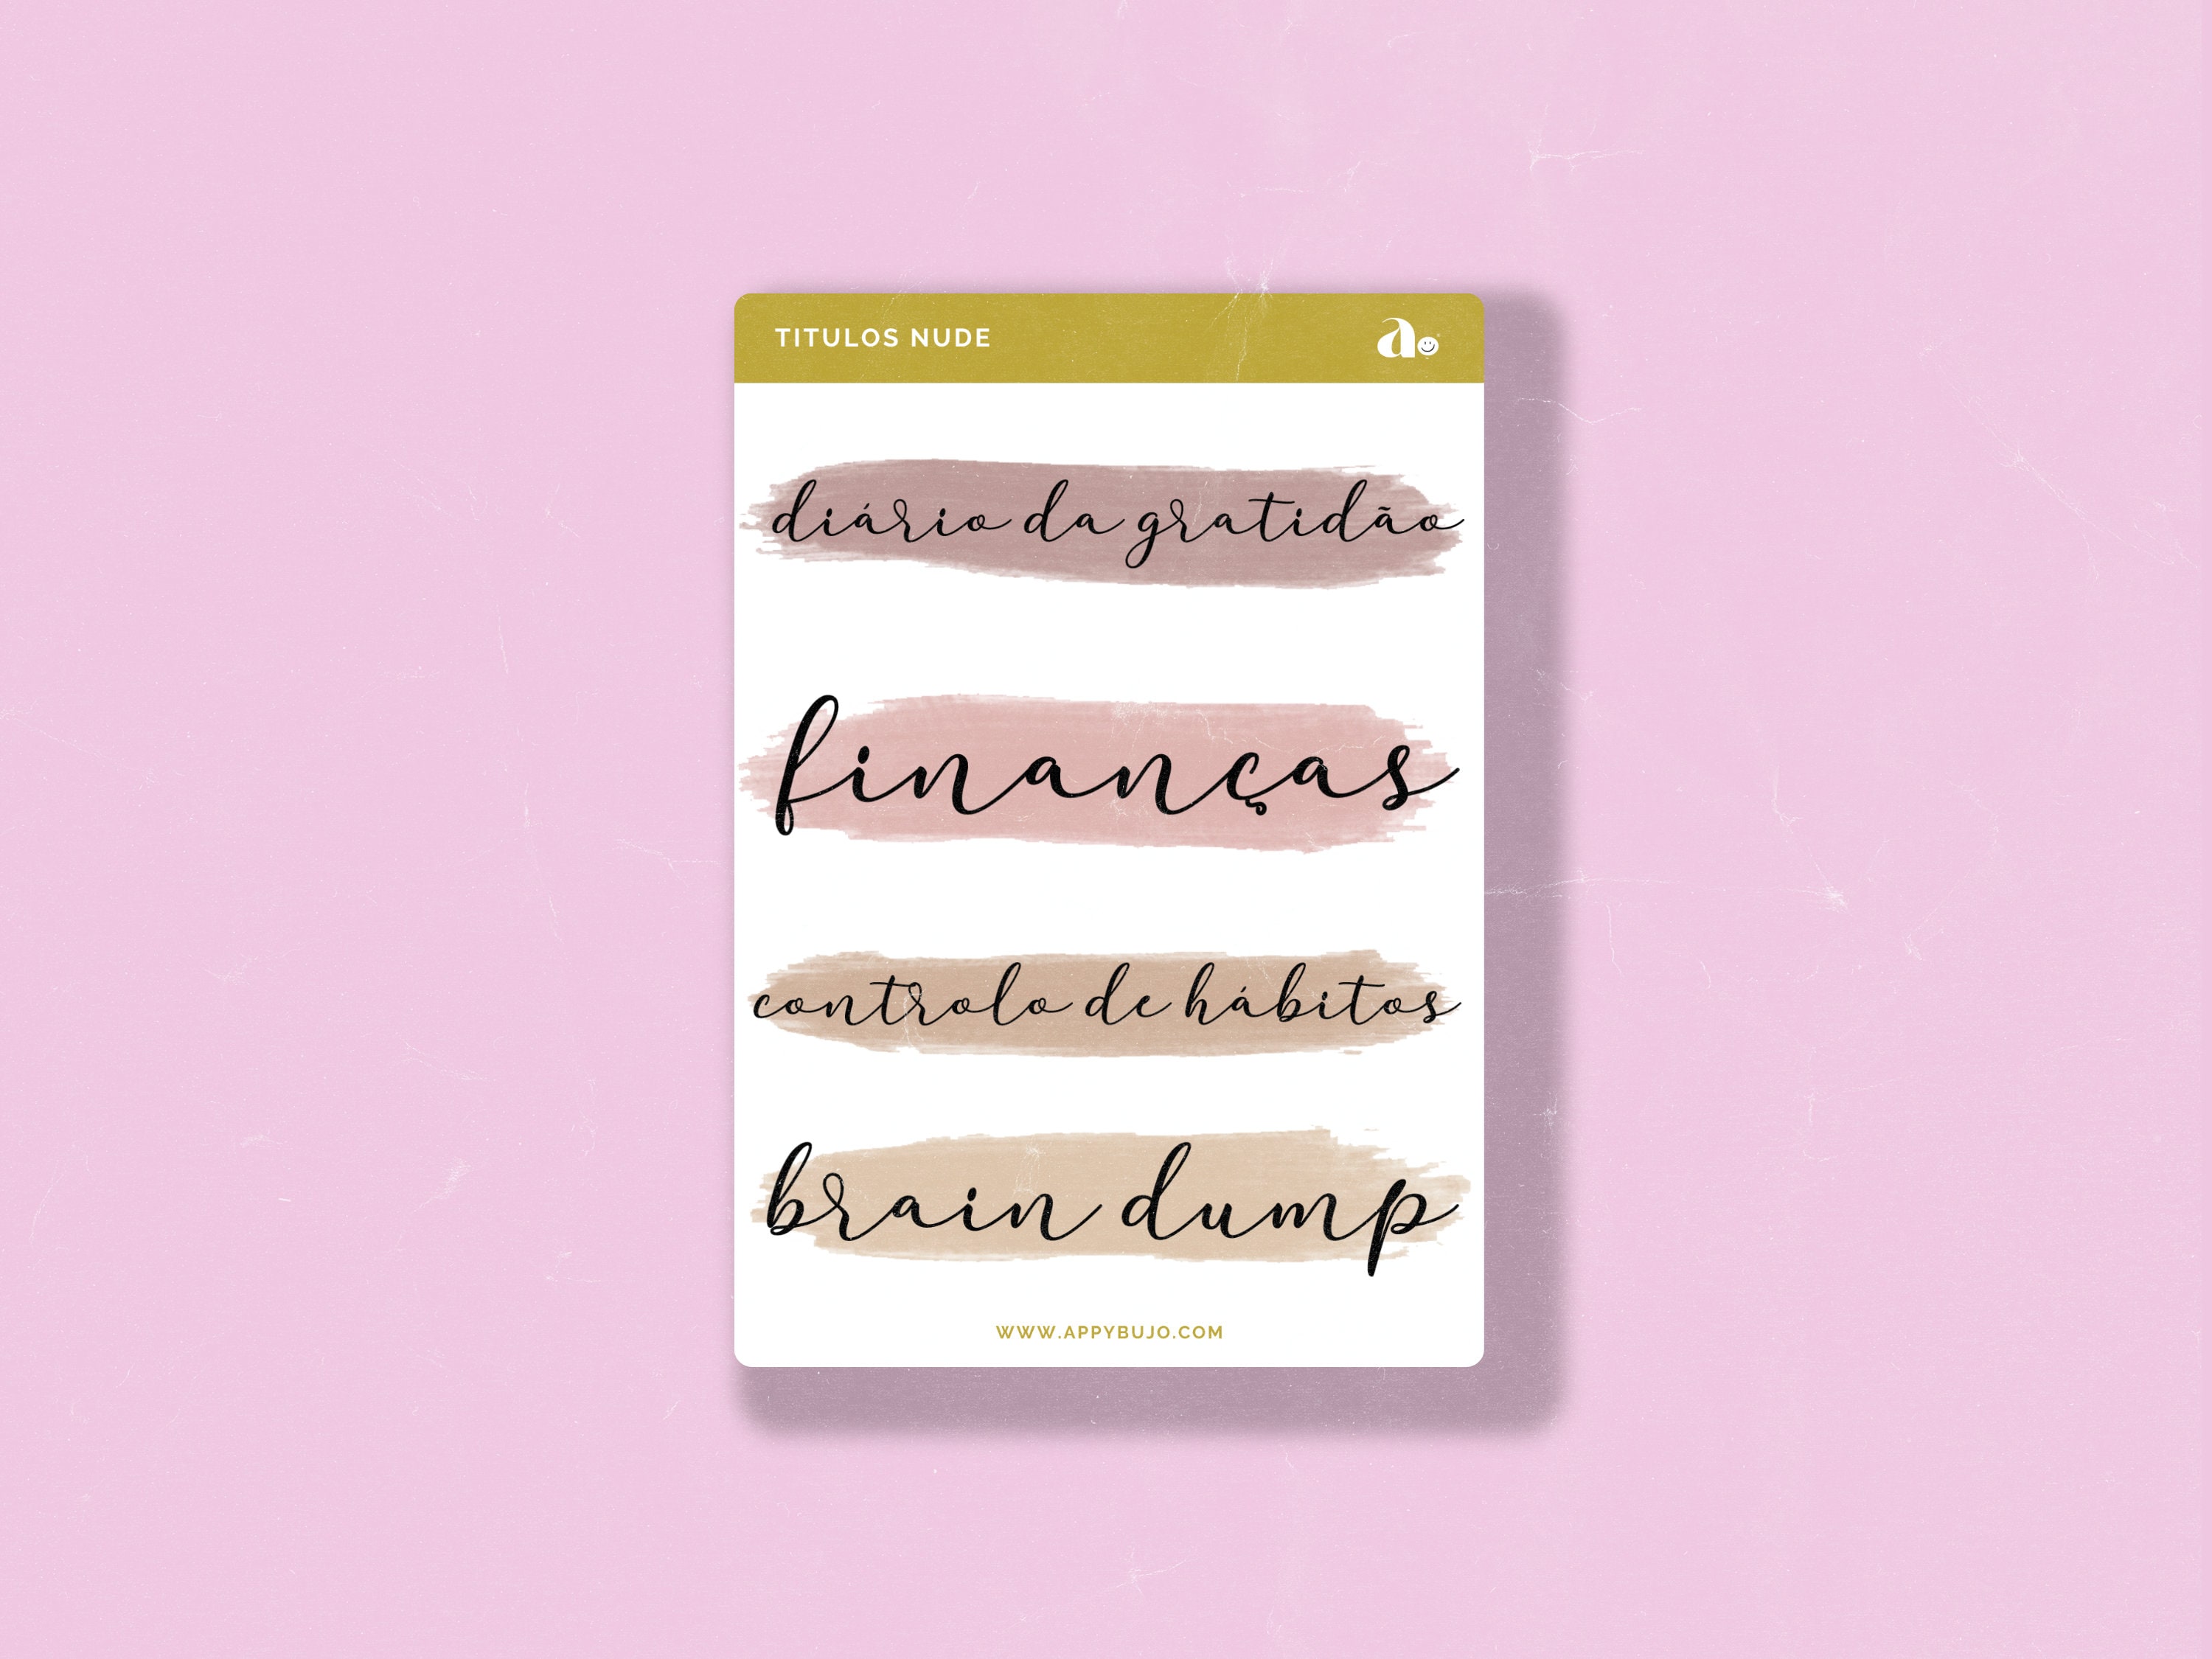 TITULOS NUDE
a
diário da gratidão
finanças
controlo de hábitos
brain dump
WWW.APPYBUJO.COM